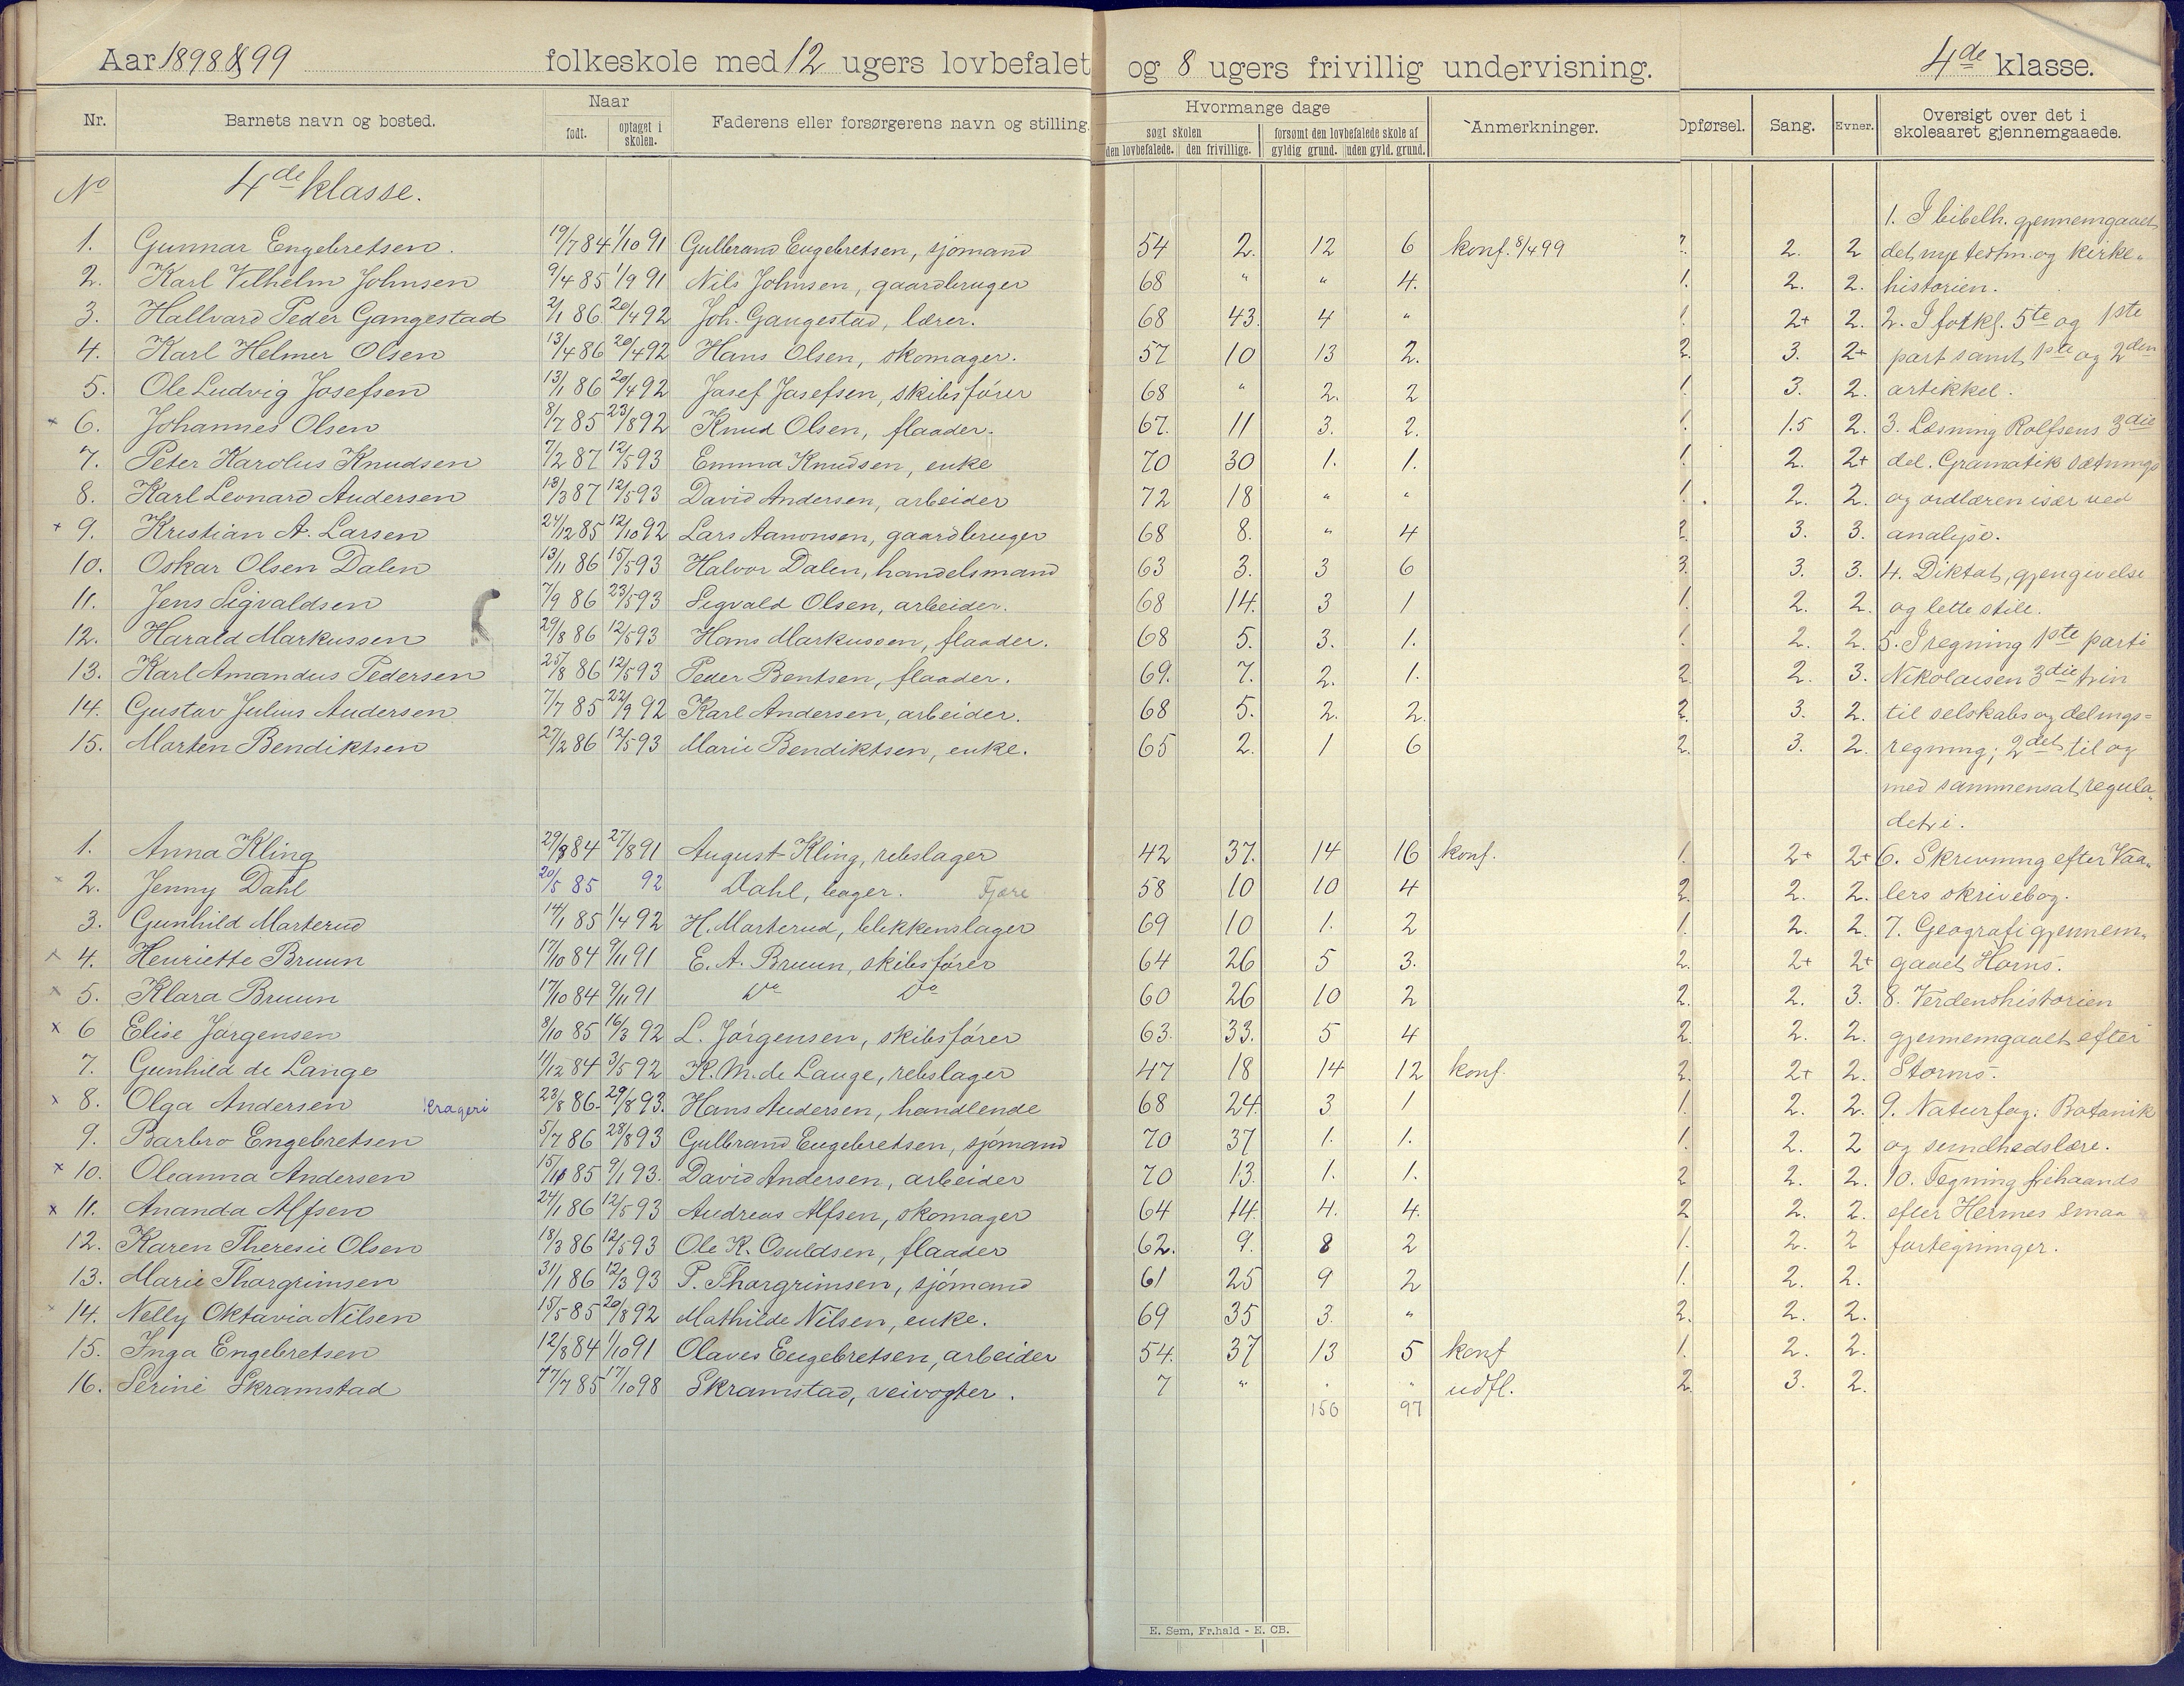 Aar 1898 & 99 folkeskole med 12 ugers lovbefalet og 8 ugers frivillig undervisning. 4de klasse.
Nr. Barnets navn og bosted. Naar født. optaget i skolen. Faderens eller forsørgerens navn og stilling. Hvormange dage søgt skolen den lovbefalede. den frivillige. forsømt den lovbefalede skole af gyldig grund. uden gyld. grund. Anmerkninger. Opførsel. Sang. Evner. Oversigt over det i skoleaaret gjennemgaaede.
No 4de klasse.
1. I bibelh. gjennemgaaet
1. Gunnar Engebretsen. 19/7 84 1/10 91 Gullbrand Engebretsen, sjømand 54 2. 12 6 konf. 8/4 99 2. 2. 2 det nye testm. og kirke-
2. Karl Vilhelm Johnsen 9/4 85 1/9 91 Nils Johnsen, gaardbruger 68 " " 4. 1. 2. 2. historien.
3. Hallvard Peder Gangestad 2/1 86 20/4 92 Joh. Gangestad, lærer. 68 43. 4 " 1. 2+ 2. 2. I forkl. 5te og 1ste
4. Karl Helmer Olsen 13/4 86 20/4 92 Hans Olsen, skomager. 57 10 13 2. 2. 3. 2+ part samt 1ste og 2den
5. Ole Ludvig Josefsen 13/1 86 20/4 92 Josef Josefsen, skibsfører 68 " 2. 2 1. 3. 2. artikkel.
× 6. Johannes Olsen 8/7 85 23/8 92 Knud Olsen, flaader. 67. 11 3. 2. 1. 1.5 2. 3. Læsning Rolfsens 3die
7. Peder Karolus Knudsen 7/2 87 12/5 93 Emma Knudsen, enke 70 30 1. 1. 1. 2. 2+ del. Gramatik sætnings
8. Karl Leonard Andersen 13/3 87 12/5 93 David Andersen, arbeider 72 18 " " 1. 2. 2. og ordlæren især ved
+ 9. Kristian A. Larsen 24/12 85 12/10 92 Lars Aanonsen, gaardbruger 68 8. " 4 2. 3. 3. analyse.
10. Oskar Olsen Dalen 13/11 86 15/5 93 Halvor Dalen, handelsmand 63 3. 3 6 3. 3. 3. 4. Diktat, gjengivelse
11. Jens Sigvaldsen 7/9 86 23/5 93 Sigvald Olsen, arbeider. 68 14. 3 1 1. 2. 2. og lette stile.
12. Harald Markussen 29/8 86 12/5 93 Hans Markussen, flaader. 68 5. 3. 1. 1. 2. 2. 5. I regning 1ste parti
13. Karl Amandus Pedersen 25/8 86 12/5 93 Peder Bentsen, flaader. 69. 7. 2. 1. 2. 2. 3. Nikolaisen 3die trin
14. Gustav Julius Andersen 7/7 85 22/9 92 Karl Andersen, arbeider. 68 5. 2. 2. 2. 3. 2. til selskabs og delings-
15. Morten Bendiktsen 27/2 86 12/5 93 Marie Bendiktsen, enke. 65 2. 1 6 2. 3. 2. regning; 2det til og
med sammensat regula-
detri.
1. Anna Kling 29/8 84 27/8 91 August Kling, rebslager 42 37. 14 16 konf. 1. 2+ 2+ 6. Skrivning efter Vaa-
× 2. Jenny Dahl 20/5 85 92 Dahl, bager. Fjære 58 10 10 4 2. 2. 2. lers skrivebog.
3. Gunhild Marterud 14/1 85 1/4 92 H. Marterud, blikkenslager 69 10 1. 2 1. 2. 2. 7. Geografi gjennem-
× 4. Henriette Bruun 17/10 84 9/11 91 E. A. Bruun, skibsfører 64 26 5 3. 2. 2+ 2+ gaaet Horns.
× 5. Klara Bruun 17/10 84 9/11 91 Do Do 60 26 10 2 2. 2. 3. 8. Verdenshistorien
× 6 Elise Jørgensen 8/10 85 16/3 92 L. Jørgensen, skibsfører 63. 33. 5 4 2. 2. 2. gjennemgaaet efter
7. Gunhild de Lange 11/12 84 3/5 92 K. M. de Lange, rebslager 47 18 14 12 konf. 2. 2+ 2. Storms.
× 8. Olga Andersen Krageri 23/8 86 29/8 93. Hans Andersen, handlende 68 24. 3 1 1. 2. 2. 9. Naturfag: Botanik
9. Barbro Engebretsen 5/7 86 28/8 93 Gullbrand Engebretsen, sjømand 70 37 1. 1. 1. 2. 2 og sundhedslære.
× 10. Oleanna Andersen 15/10 85 9/1 93. David Andersen, arbeider 70 13. 1. 1. 2 2. 2. 10. Tegning frihaands
× 11. Ananda Alfsen 24/1 86 12/5 93 Andreas Alfsen, skomager 64 14. 4. 4. 2 2. 2. efter Hermes smaa
12. Karen Theresie Olsen 18/3 86 12/5 93 Ole K. Osuldsen, flaader 62. 9. 8 2 1. 2. 2 fortegninger.
13. Marie Thorgrimsen 31/1 86 12/3 93 P. Thorgrimsen, sjømand 61 25 9 2 1. 2. 2.
× 14. Nelly Oktavia Nilsen 15/5 85 20/8 92 Mathilde Nilsen, enke. 69 35 3. " 2. 2. 2.
15. Inga Engebretsen 12/8 84 1/10 91 Olaves Engebretsen, arbeider 54. 37 13 5 konf 1. 2. 2.
16. Serine Skramstad 17/7 85 17/10 98 Skramstad, veivogter. 7 " " " udfl. 2. 3. 2.
156 97
E. Sem, Fr.hald - E. CB.